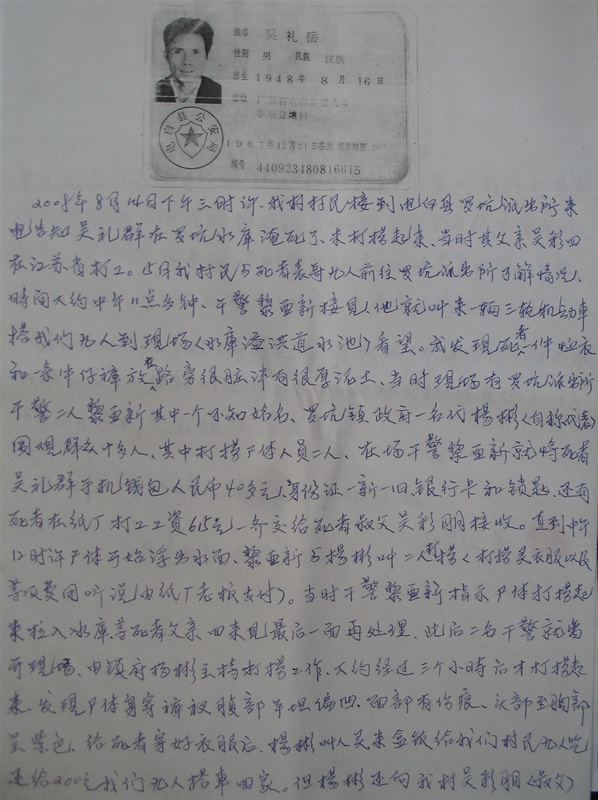 姓名 吴礼岳
性别 男 民族 汉族
出生 1948年8月16日
住址 广东省
电白县公安局
1987年12月31日签发
编号 440923480816615
2008年8月14日下午三时许、我村村民接到电白县罗坑派出所来
电告知吴礼群在罗坑水库淹死了、未打捞起来、当时其父亲吴彩四
在江苏省打工。15日我村民与死者表哥九人前往罗坑派出所了解情况、
时间大约中午11点多钟、干警黎亚新接见、他就叫来一辆三轮机动车
搭我们九人到现场(水库溢洪道水池)看望。我发现死者一件上衣
和一条牛仔裤放在路旁很脏沾有很厚活土、当时现场有罗坑派出所
干警二人黎亚新其中一个不知姓名、罗坑镇政府一名代杨彬(自称代表)
围观群众十多人、其中打捞尸体人员二人、在场干警黎亚新就将死者
吴礼群手机钱包人民币40多元、身份证一新一旧、银行卡和锁匙、还有
死者在纸厂打工工资615元一齐交给死者叔父吴彩朋接收。直到中午
12时许尸体开始浮出水面、黎亚新与杨彬叫二人打捞(打捞买衣服以及
等项费用听说由纸厂老板支付)。当时干警黎亚新指示尸体打捞起
来拉入水库等死者父亲回来见最后一面再处理、此后二名干警就离
开现场、由镇府杨彬主持打捞工作、大约经过三个小时后才打捞起
来、发现尸体身穿裤衩腹部平坦偏凹、面部有伤痕、头部至胸部
呈紫色、给死者穿好衣服后、杨彬叫人买来盒饭给我们村民九人吃
还给200元我们九人搭车回家。但杨彬还向我村吴彩朋(叔父)